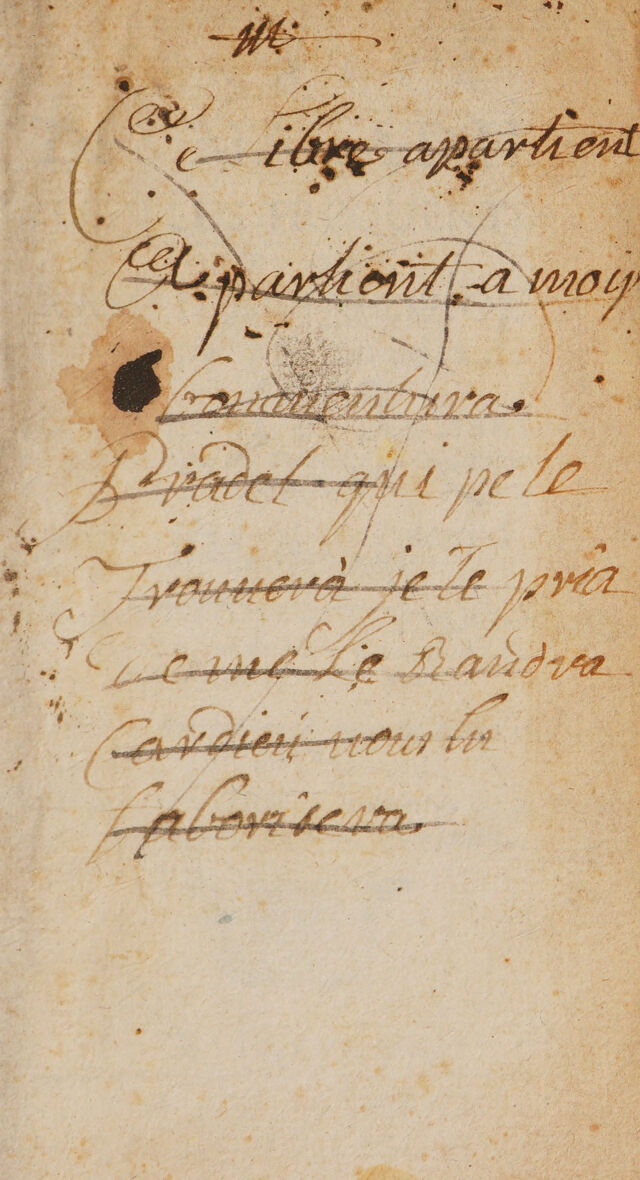 m
Ce Libre apartient
Apartient a moy
bonauentura
Pradel qui pe le
Trouuerà je te pria
de me Le Randra
Car dieu uous lu
faborisera